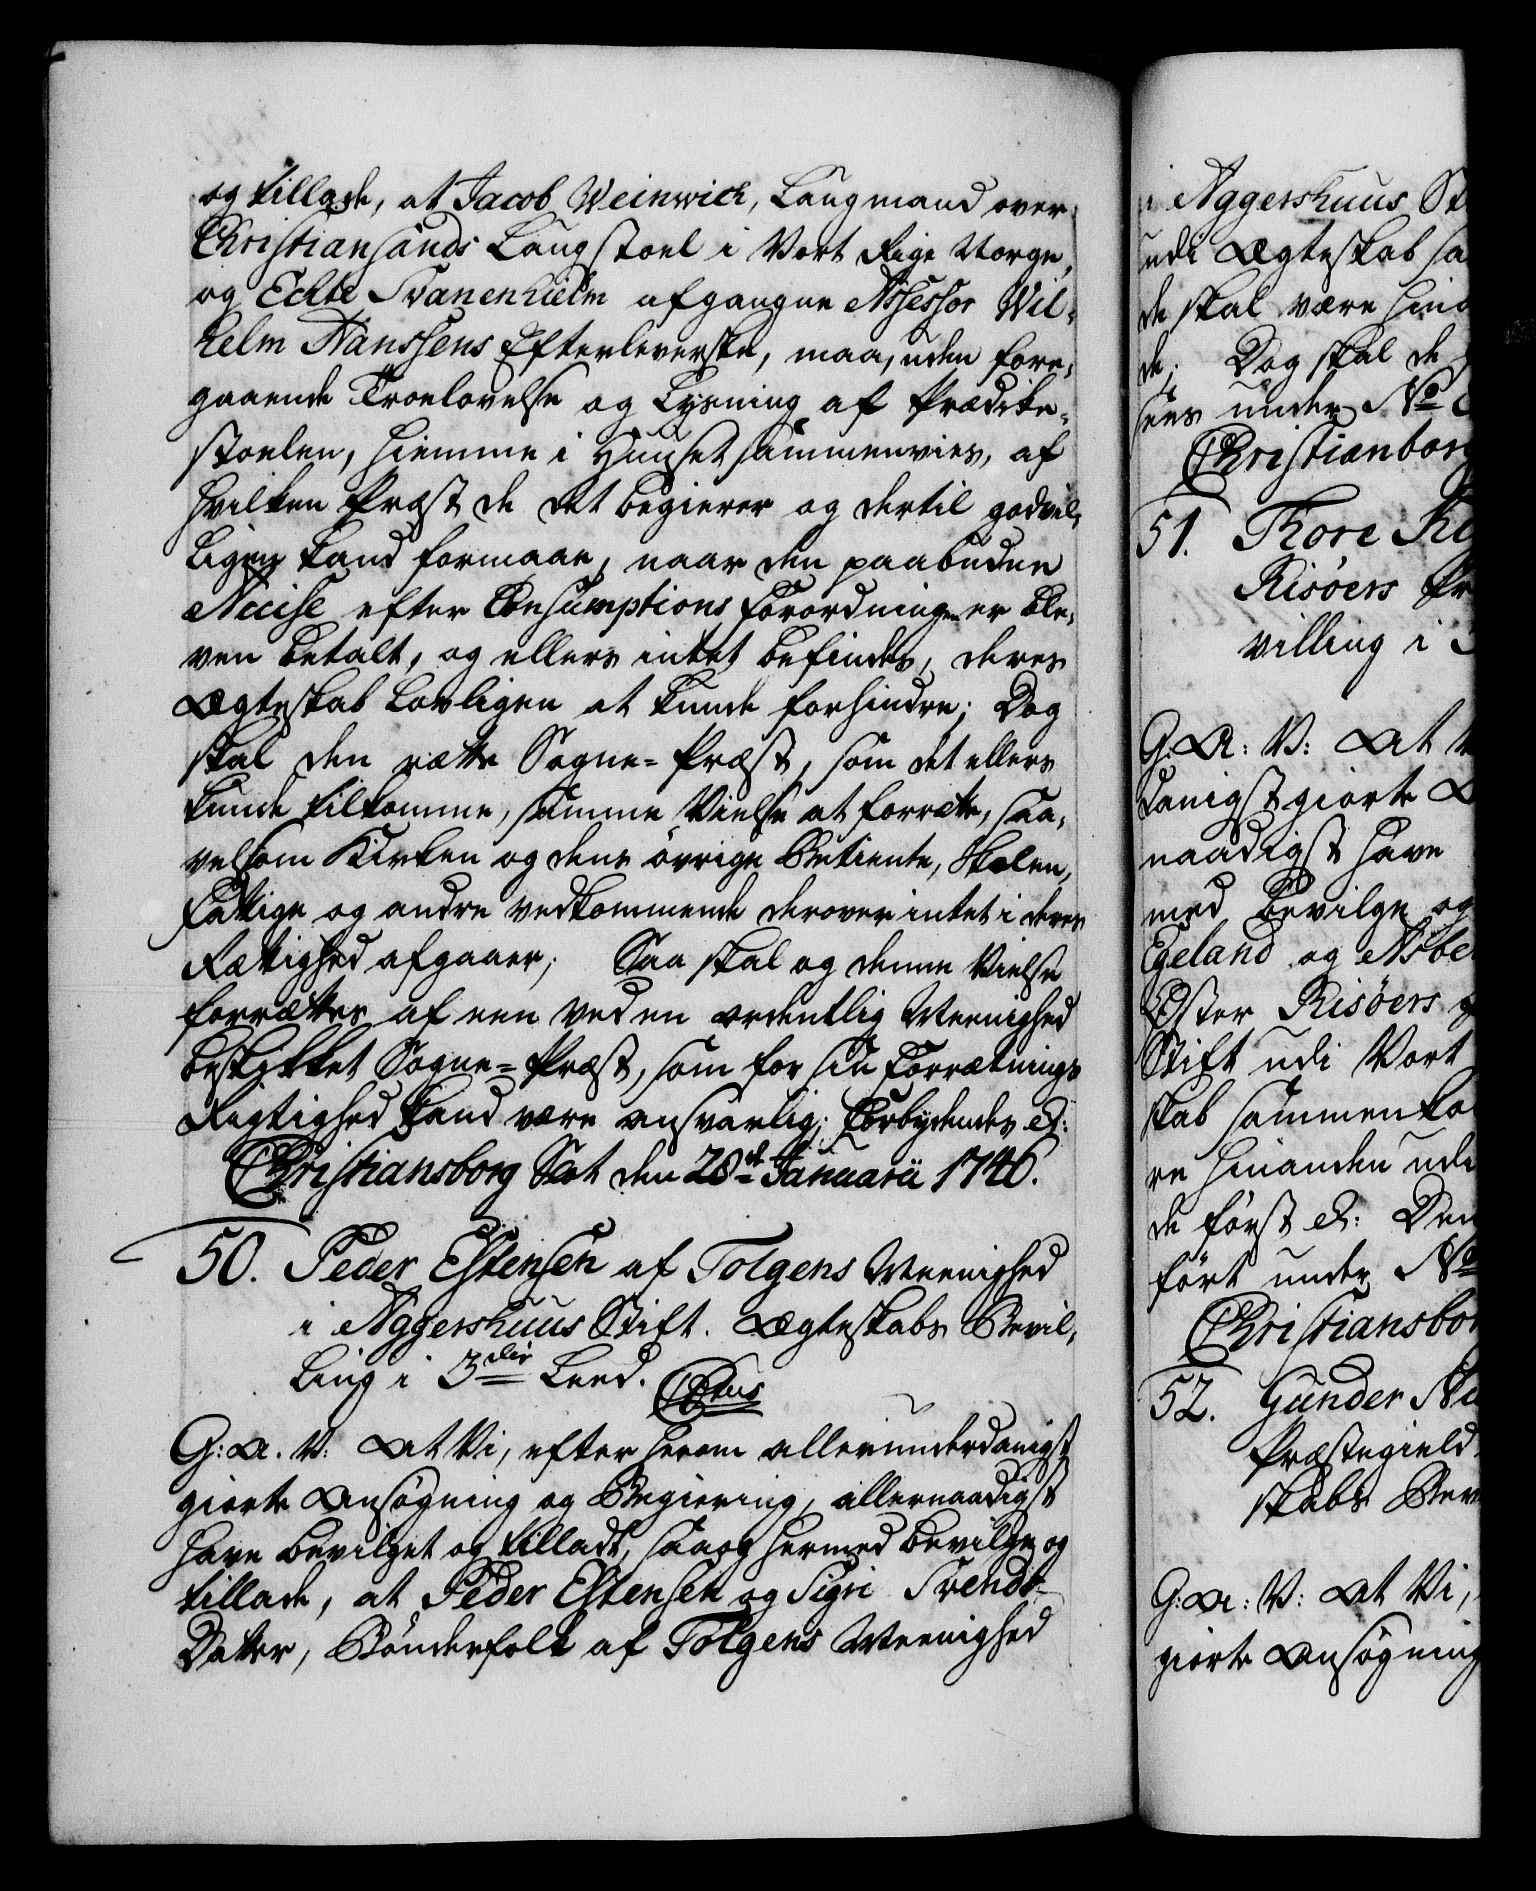 og tillade, at Jacob Weinwich, Laugmand over
Christiansands Laugstoel i Vort Rige Norge,
og Echte Svanenhielm afgangne Assessor Wil-
helm Hanssens Efterleverske, maa, uden fore-
gaaende Troelovelse og Lysning af Prædike-
stoelen, hiemme i Huuset sammenvies, af
hvilken Præst de det begierer og dertil godvil-
ligen kand formaae, naar den paabudne
Accise efter Consumptions Forordningen er ble-
ven betalt, og ellers intet befindes, deres
Ægteskab lovligen at kunde forhindre; Dog
skal den rette Sogne-Præst, som det ellers
kunde tilkomme, samme Vielse at forrette, saa-
velsom Kirken og dens øvrige Betiente, Skolen,
Fattige og andre vedkommende derover intet i deres
Rættighed afgaaer; Saa skal og denne Vielse
forrættes af een ved en ordentlig Meenighed
beskikket Sogne-Præst, som for sin Forrætnings
Rigtighed kand være ansvarlig; Forbydendes &:
Christiansborg Slot den 28de Januarii 1746.
50. Peder Estensen af Tolgens Meenighed
i Aggershuus Stift. Ægteskabs Bevil-
ling i 3die Leed.
G: A. V: At Vi, efter herom allerunderdanigst
giorte Ansøgning og Begiering, allernaadigst
have bevilget og tilladt, saa og hermed bevilge og
tillade, at Peder Estensen og Sigri Svends-
Datter, Bønderfolk af Tolgens Meenighed
i Aggershuus St
udi Ægteskab sa
de skal være hin
de. Dog skal de
sees under No
Christianborg
51. Thore
Risøers Pr
villing i 3
G. A: V: At V
danigst giorte A
naadigst have
med bevilge og
Egeland og
Øster Risøers
Stift udi Vort
skab sammenko
re hinanden udi
de først &: Den
ført under No
Christiansbor
52. Gunder
Præstegield
skabs Bev
G: A: V: At Vi,
giorte Ansøgning